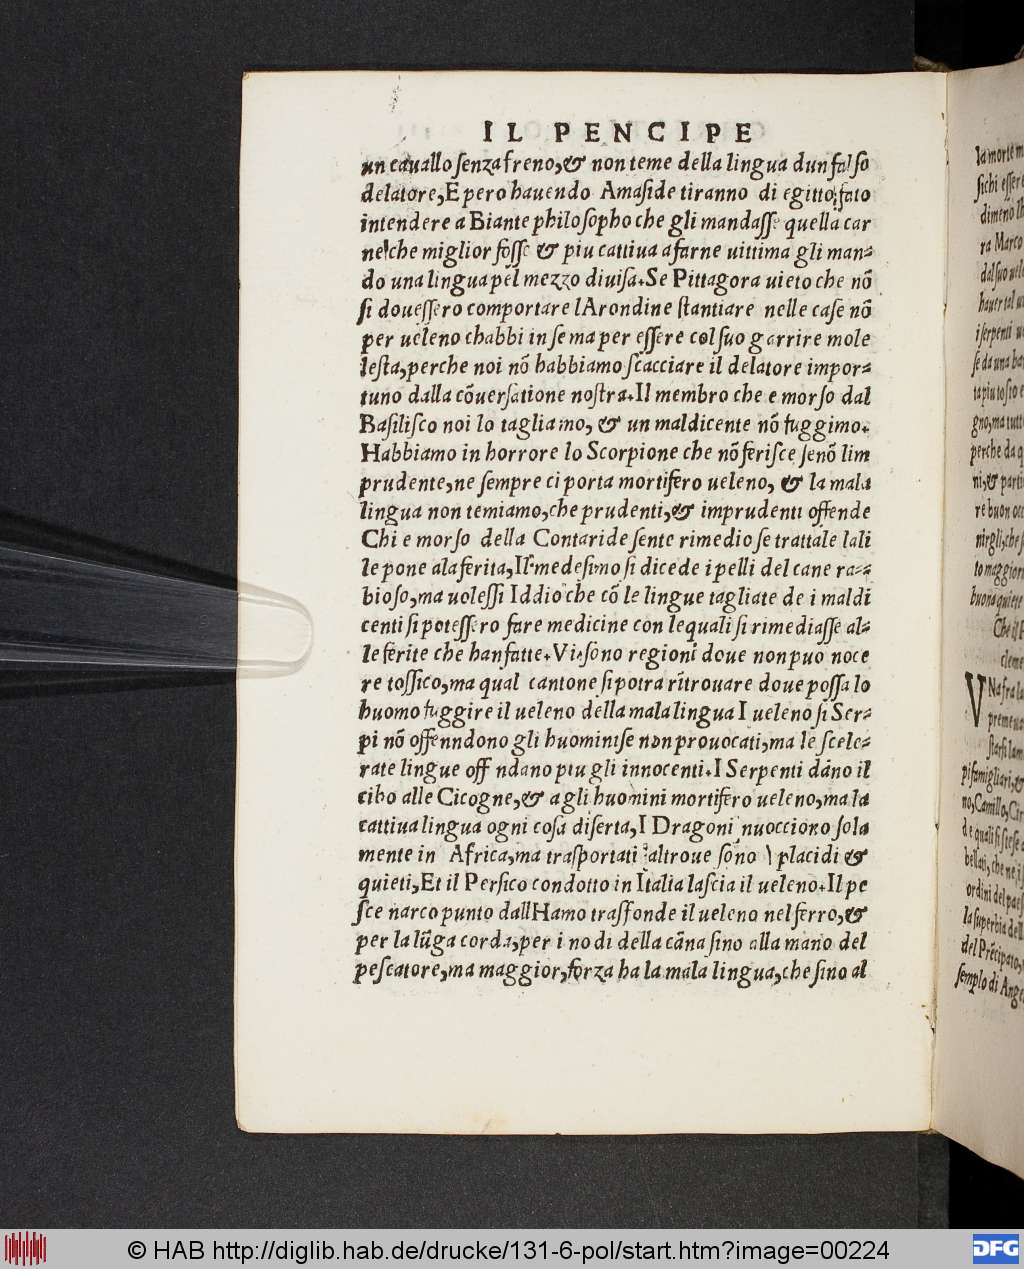 IL PENCIPE
un cavallo senza freno, & non teme della lingua dun falso
delatore, E pero havendo Amaside tiranno di egitto, fato
intendere a Biante philosopho che gli mandasse quella car
ne che miglior fosse & piu cattiva a farne uittima gli man=
do una lingua pel mezzo diuisa. Se Pittagora uieto che nõ
si douessero comportare lArondine stantiare nelle case nõ
per ueleno chabbi in se ma per essere col suo garrire mole
lesta, perche noi nõ habbiamo scacciare il delatore impor=
tuno dalla cõuersatione nostra. Il membro che e morso dal
Basilisco noi lo tagliamo, & un maldicente nõ fuggimo.
Habbiamo in horrore lo Scorpione che nõ ferisce senõ lim
prudente, ne sempre ci porta mortifero ueleno, & la mala
lingua non temiamo, che prudenti, & imprudenti offende
Chi e morso della Contaride sente rimedio se trattale lali
le pone ala ferita, Il medesimo si dice de i pelli del cane ra=
bioso, ma uolessi Iddio che cõ le lingue tagliate de i maldi
centi si potessero fare medicine con lequali si rimediasse al=
le ferite che han fatte. Vi sono regioni doue non puo noce
re tossico, ma qual cantone si potra ritrouare doue possa lo
huomo fuggire il ueleno della mala lingua I ueleno si Ser=
pi nõ offenndono gli huomini se non prouocati, ma le scele=
rate lingue off ndano piu gli innocenti. I Serpenti dãno il
cibo alle Cicogne, & agli huomini mortifero ueleno, ma la
cattiua lingua ogni cosa diserta, I Dragoni nuocciono sola
mente in Africa, ma trasportati altroue sono placidi &
quieti, Et il Persico condotto in Italia lascia il ueleno. Il pe
sce narco punto dall Hamo trasfonde il ueleno nel ferro, &
per la lũga corda, per i nodi della cãna sino alla mano del
pescatore, ma maggior, forza ha la mala lingua, che sino al
la morte
sichi essere
dimeno
ra Marco
dal suo
hauer tal
i serpenti
se da una
ta piu tosto
gno, ma tutt
perche da
ni, & parti
re buon
nirgli, che
to maggior
buona quiete
Che il
cleme
VNa fra la
preme
starsi
pi famigliari, &
no, Camillo, Cir
de quali si
bellati, che ne i
ordini del pae
la superbia del
del Prẽcipato,
semplo di Ange
© HAB http://diglib.hab.de/drucke/131-6-pol/start.htm?image=00224
DFG